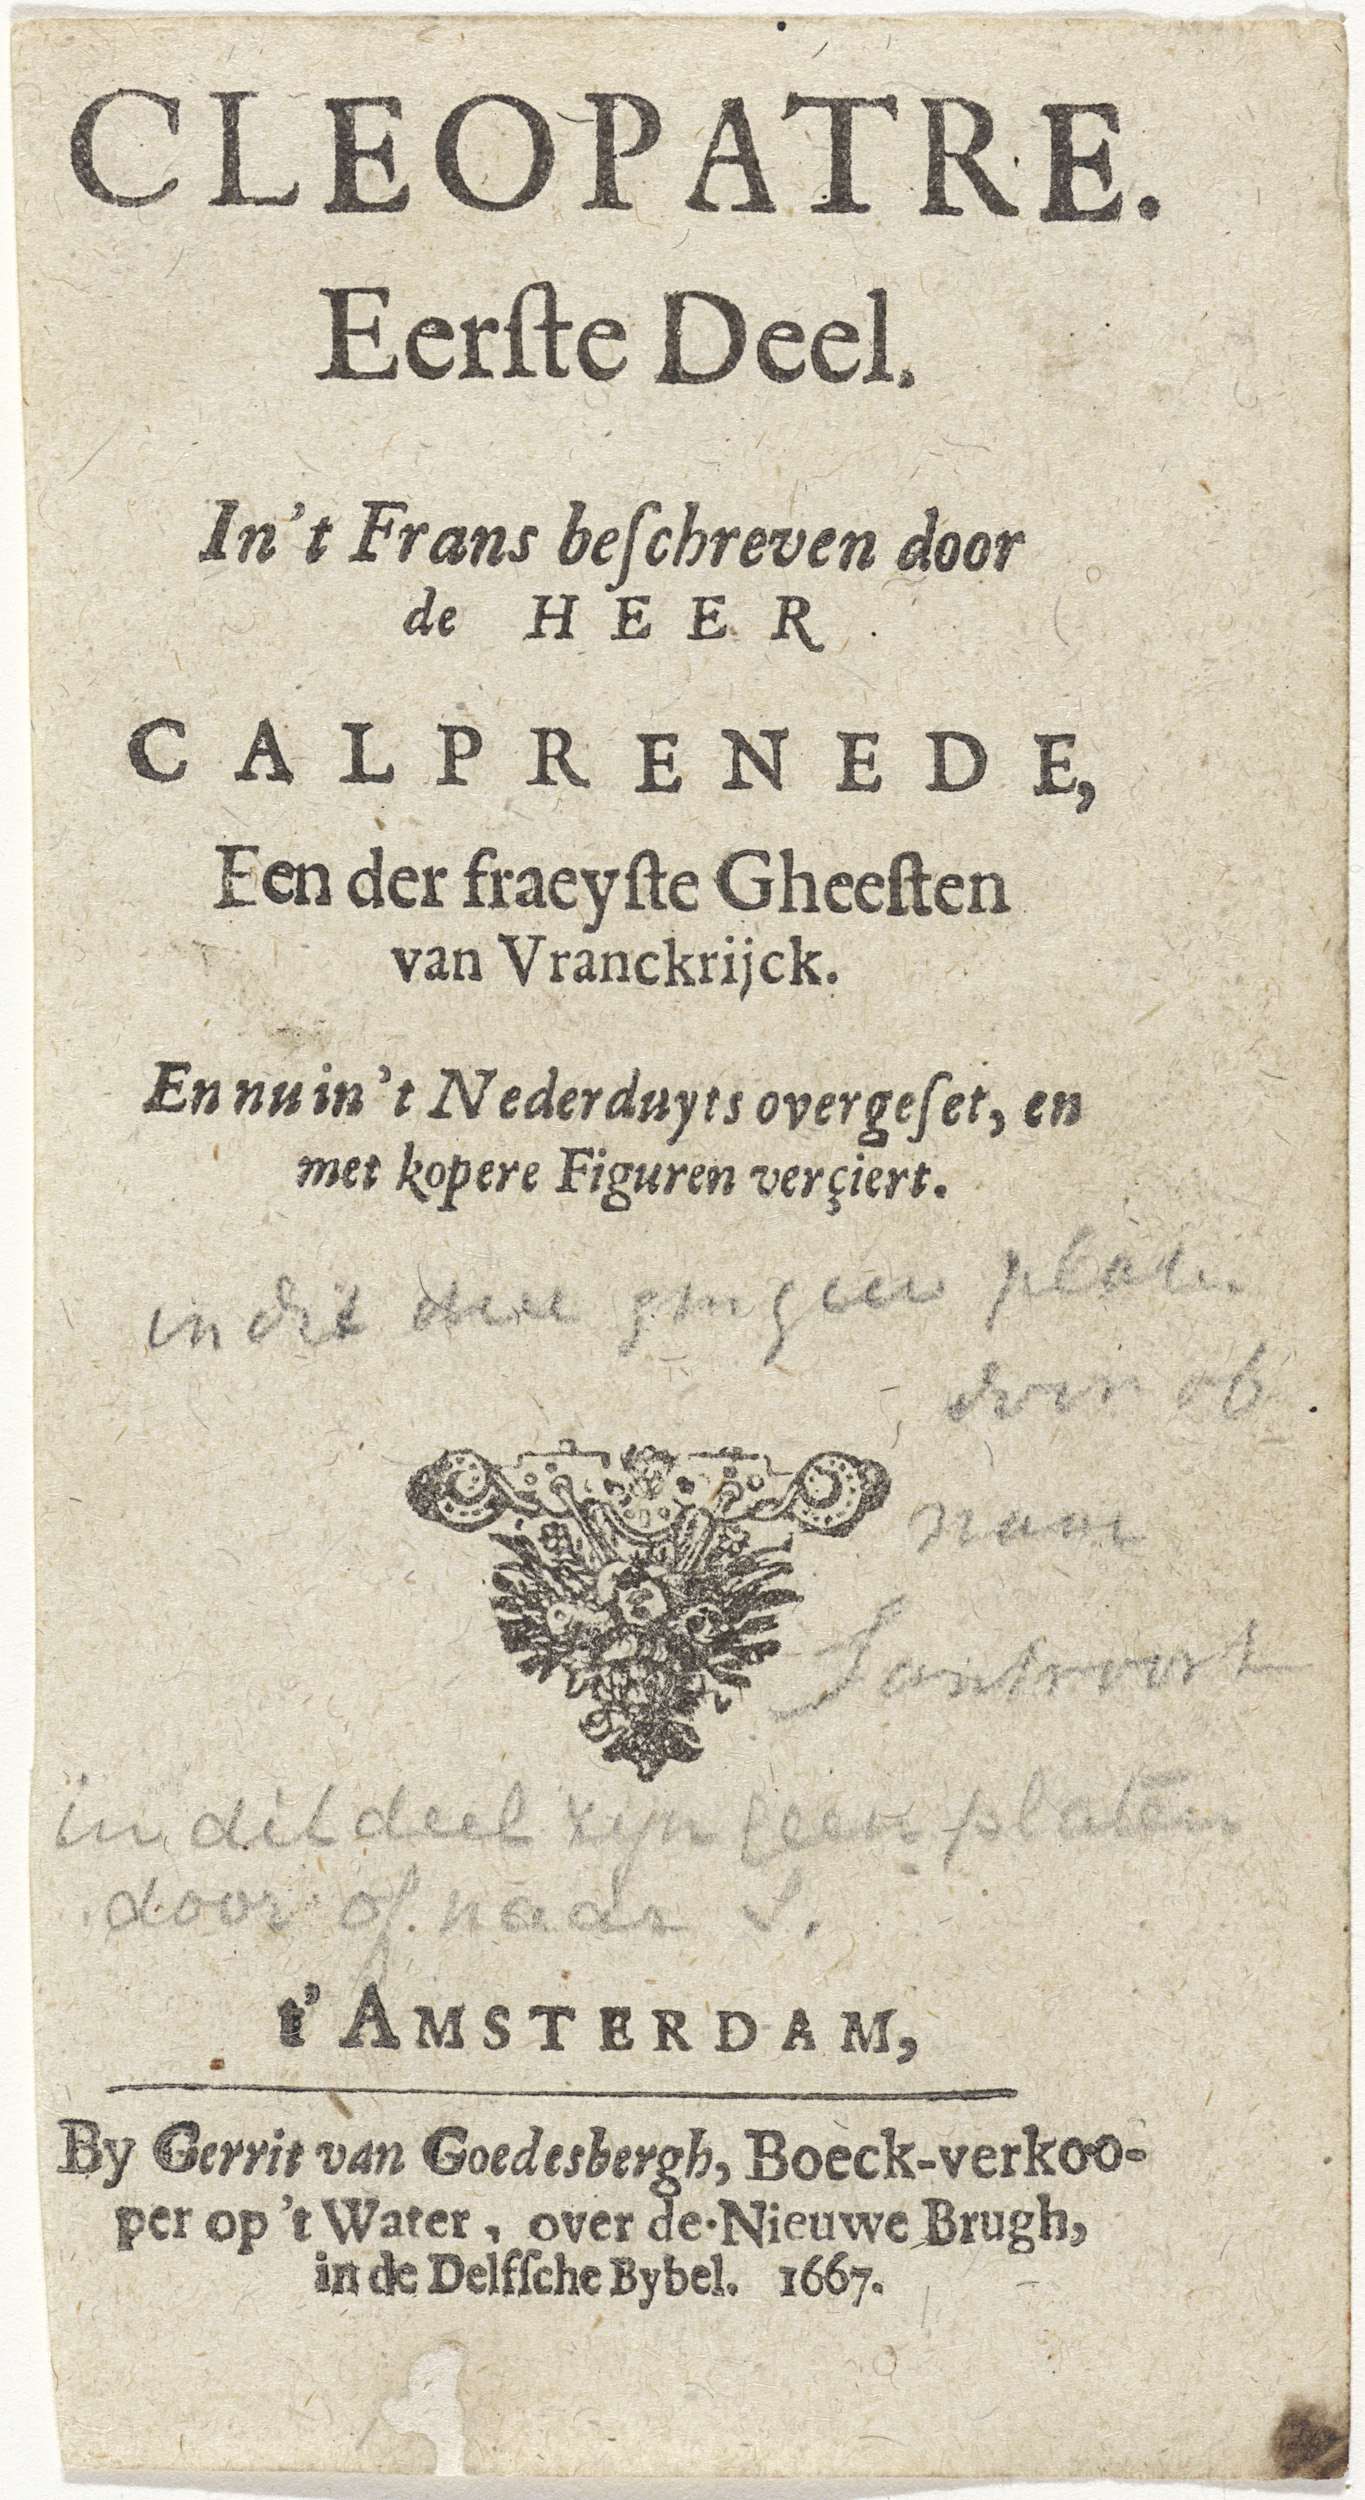 CLEOPATRE.
Eerſte Deel.
In't Frans beſchreven door
de HEER
CALPRENEDE,
Een der fraeyſte Gheeſten
van Vranckrijck.
En nu in't Nederduyts overgeſet, en
met kopere Figuren verçiert.
in dit geen platen
naar
Santvoort
in dit deel zijn geen platen
door of naar S.
t' AMSTERDAM,
By Gerrit van Goedesbergh, Boeck-verkoo-
per op 't Water, over de Nieuwe Brugh,
in de Delfſche Bybel. 1667.